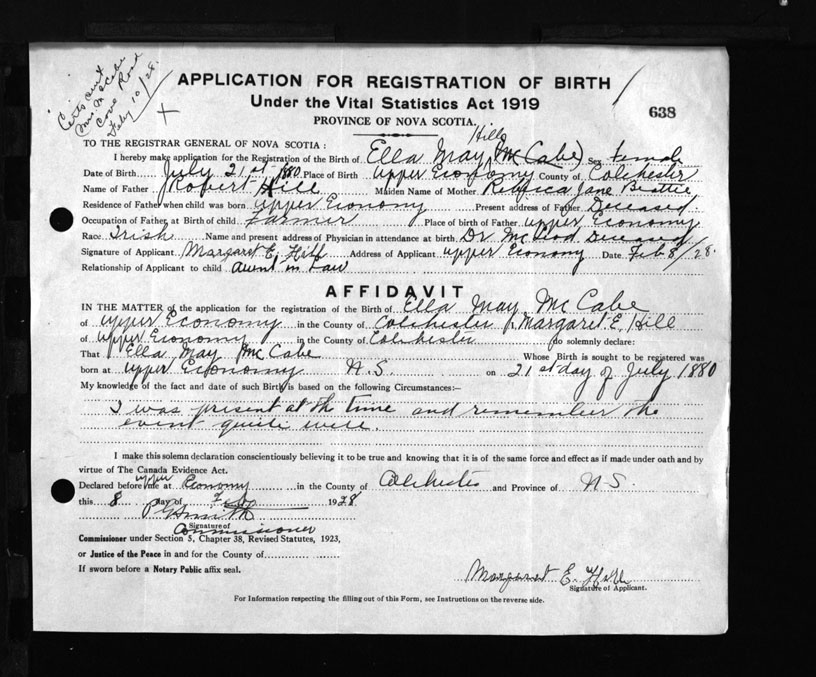 Certs sent
Mrs. McCabe
Cove Road
Feby 10/28.
APPLICATION FOR REGISTRATION OF BIRTH
Under the Vital Statistics Act 1919
638
PROVINCE OF NOVA SCOTIA.
TO THE REGISTRAR GENERAL OF NOVA SCOTIA :
Hills
I hereby make application for the Registration of the Birth of Ella May (McCabe) Sex Female
Date of Birth July 21st 1880 Place of Birth Upper Economy County of Colchester
Name of Father Robert Hill Maiden Name of Mother Rebecca Jane Beattie
Residence of Father when child was born Upper Economy Present address of Father Deceased.
Occupation of Father at Birth of child Farmer Place of birth of Father Upper Economy
Race Irish Name and present address of Physician in attendance at birth Dr McLeod Deceased
Signature of Applicant Margaret E. Hill Address of Applicant Upper Economy Date Feb 8/28.
Relationship of Applicant to child Aunt in Law
AFFIDAVIT
IN THE MATTER of the application for the registration of the Birth of Ella May McCabe
of Upper Economy in the County of Colchester I, Margaret E. Hill
of Upper Economy in the County of Colchester do solemnly declare:
That Ella May McCabe Whose Birth is sought to be registered was
born at Upper Economy N.S. on 21st day of July 1880
My knowledge of the fact and date of such Birth is based on the following Circumstances:—
I was present at the time and remember the
event quite well.
I make this solemn declaration conscientiously believing it to be true and knowing that it is of the same force and effect as if made under oath and by
virtue of The Canada Evidence Act.
Declared before me at Upper Economy in the County of Colchester and Province of N.S.
this 8 day of Feby 1928
Smith
Signature of
Commissioner
Commissioner under Section 5, Chapter 38, Revised Statutes, 1923,
or Justice of the Peace in and for the County of
If sworn before a Notary Public affix seal.
Margaret E. Hill
Signature of Applicant.
For Information respecting the filling out of this Form, see Instructions on the reverse side.